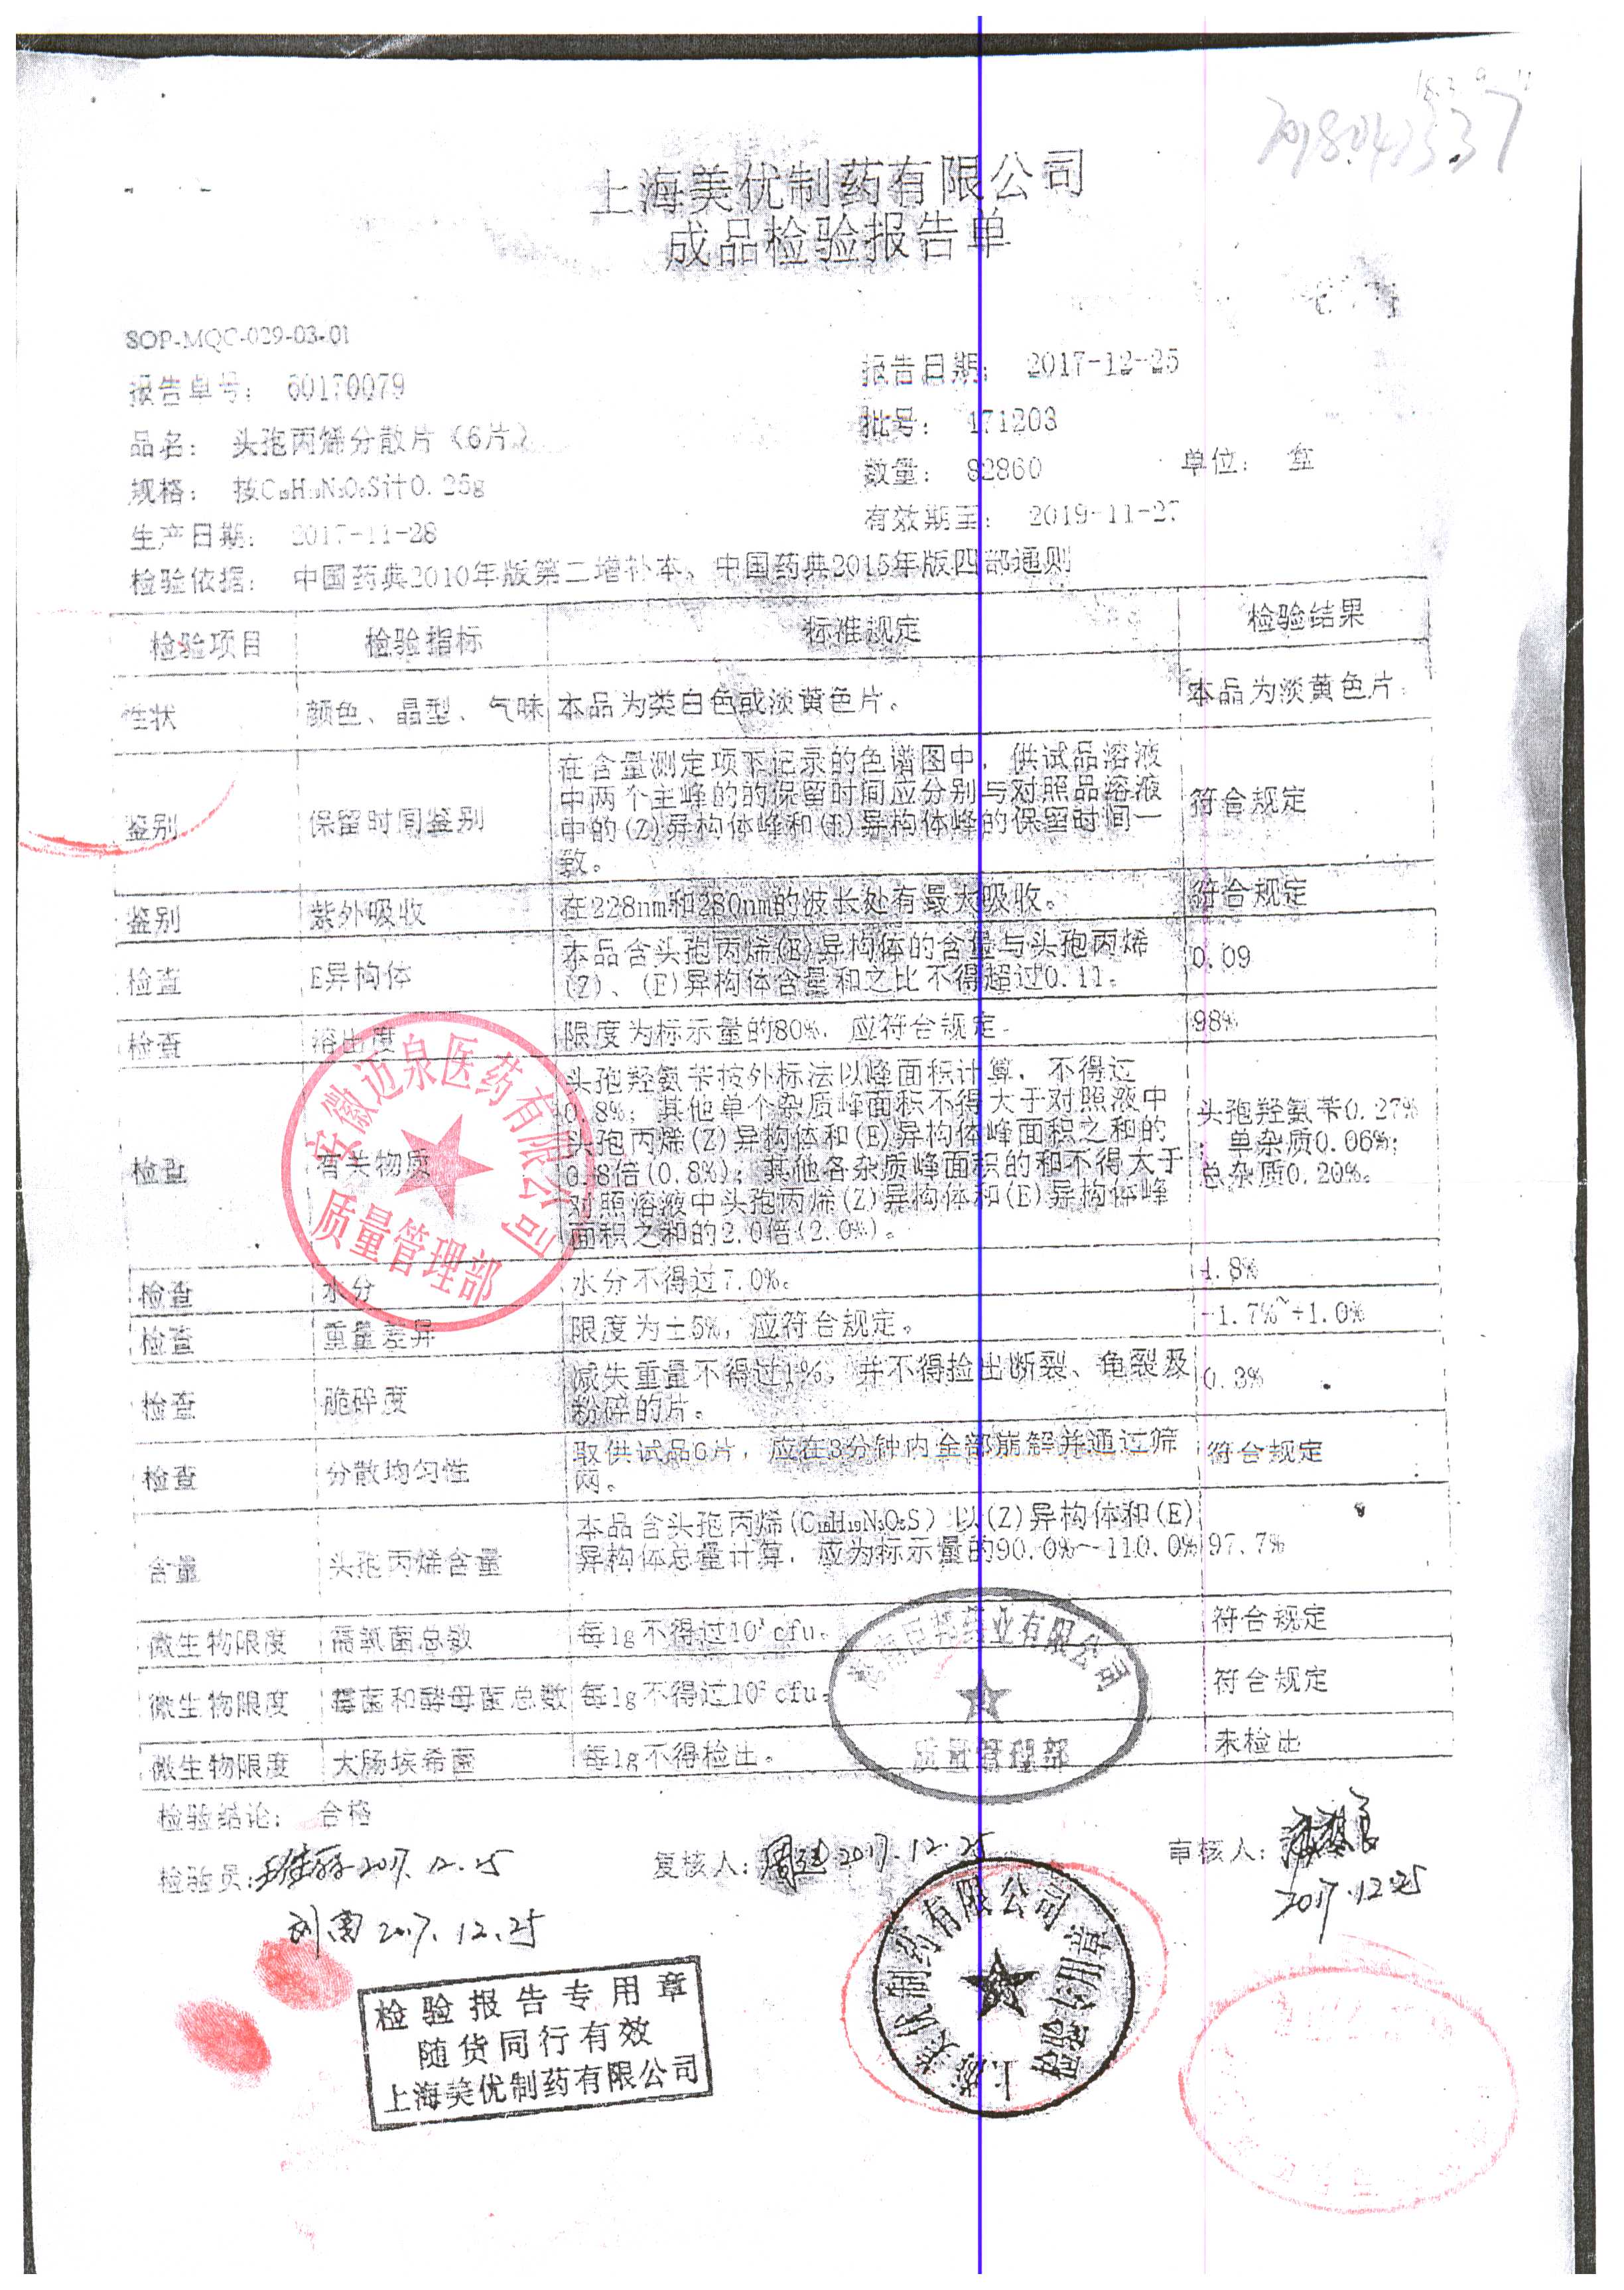 上海美优制药有限公司
成品检验报告单
SOP-MQC-029-03-01
报告单号： 60170079
报告日期： 2017-12-25
品名： 头孢丙烯分散片（6片）
批号： 171203
规格： 按C₁₈H₁₉N₃O₅S计0.25g
数量： 82860 单位： 盒
生产日期： 2017-11-28
有效期至： 2019-11-27
检验依据： 中国药典2010年版第二增补本，中国药典2015年版四部通则
检验项目 检验指标 标准规定 检验结果
性状 颜色、晶型、气味 本品为类白色或淡黄色片。 本品为淡黄色片。
在含量测定项下记录的色谱图中，供试品溶液
中两个主峰的的保留时间应分别与对照品溶液
鉴别 保留时间鉴别 中的(Z)异构体峰和(E)异构体峰的保留时间一 符合规定
致。
鉴别 紫外吸收 在228nm和280nm的波长处有最大吸收。 符合规定
本品含头孢丙烯(E)异构体的含量与头孢丙烯
检查 E异构体 (Z)、(E)异构体含量和之比不得超过0.11。 0.09
检查 溶出度 限度为标示量的80%，应符合规定。 98%
头孢羟氨苄按外标法以峰面积计算，不得过
0.8%；其他单个杂质峰面积不得大于对照液中 头孢羟氨苄0.27%
头孢丙烯(Z)异构体和(E)异构体峰面积之和的 ；单杂质0.06%；
检查 有关物质 0.8倍(0.8%)；其他各杂质峰面积的和不得大于 总杂质0.20%。
对照溶液中头孢丙烯(Z)异构体和(E)异构体峰
面积之和的2.0倍(2.0%)。
检查 水分 水分不得过7.0%。 4.8%
检查 重量差异 限度为±5%，应符合规定。 -1.7%~+1.0%
减失重量不得过1%，并不得捡出断裂、龟裂及
检查 脆碎度 粉碎的片。 0.3%
取供试品6片，应在3分钟内全部崩解并通过筛
检查 分散均匀性 网。 符合规定
本品含头孢丙烯(C₁₈H₁₉N₃O₅S)以(Z)异构体和(E)
含量 头孢丙烯含量 异构体总量计算，应为标示量的90.0%～110.0% 97.7%
微生物限度 需氧菌总数 每1g不得过10³cfu。 符合规定
微生物限度 霉菌和酵母菌总数 每1g不得过10²cfu。 符合规定
微生物限度 大肠埃希菌 每1g不得检出。 未检出
检验结论： 合格
检验员： 2017.12.25
复核人： 2017.12.25
审核人：
2017.12.25
2017.12.25
安徽迈泉医药有限公司
质量管理部
药业有限公司
质量管理部
检验报告专用章
随货同行有效
上海美优制药有限公司
上海美优制药有限公司
质检专用章